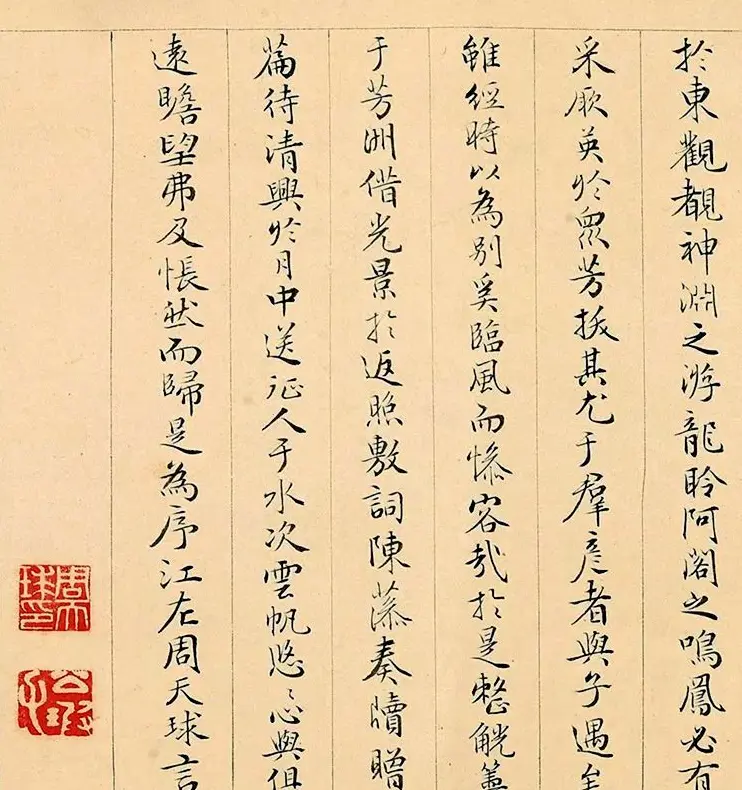 於東觀覩神淵之游龍聆阿閣之鳴鳳必有
采厥英於眾芳拔其尤于羣彥者與子遇
雖經時以為別奚臨風而慘容哉於是整觥籌
于芳洲借光景於返照敷詞陳藻奏牘贈
篇待清興於月中送征人于水次雲帆悠悠心與俱
遠瞻望弗及悵然而歸是為序江左周天球言
周天球印